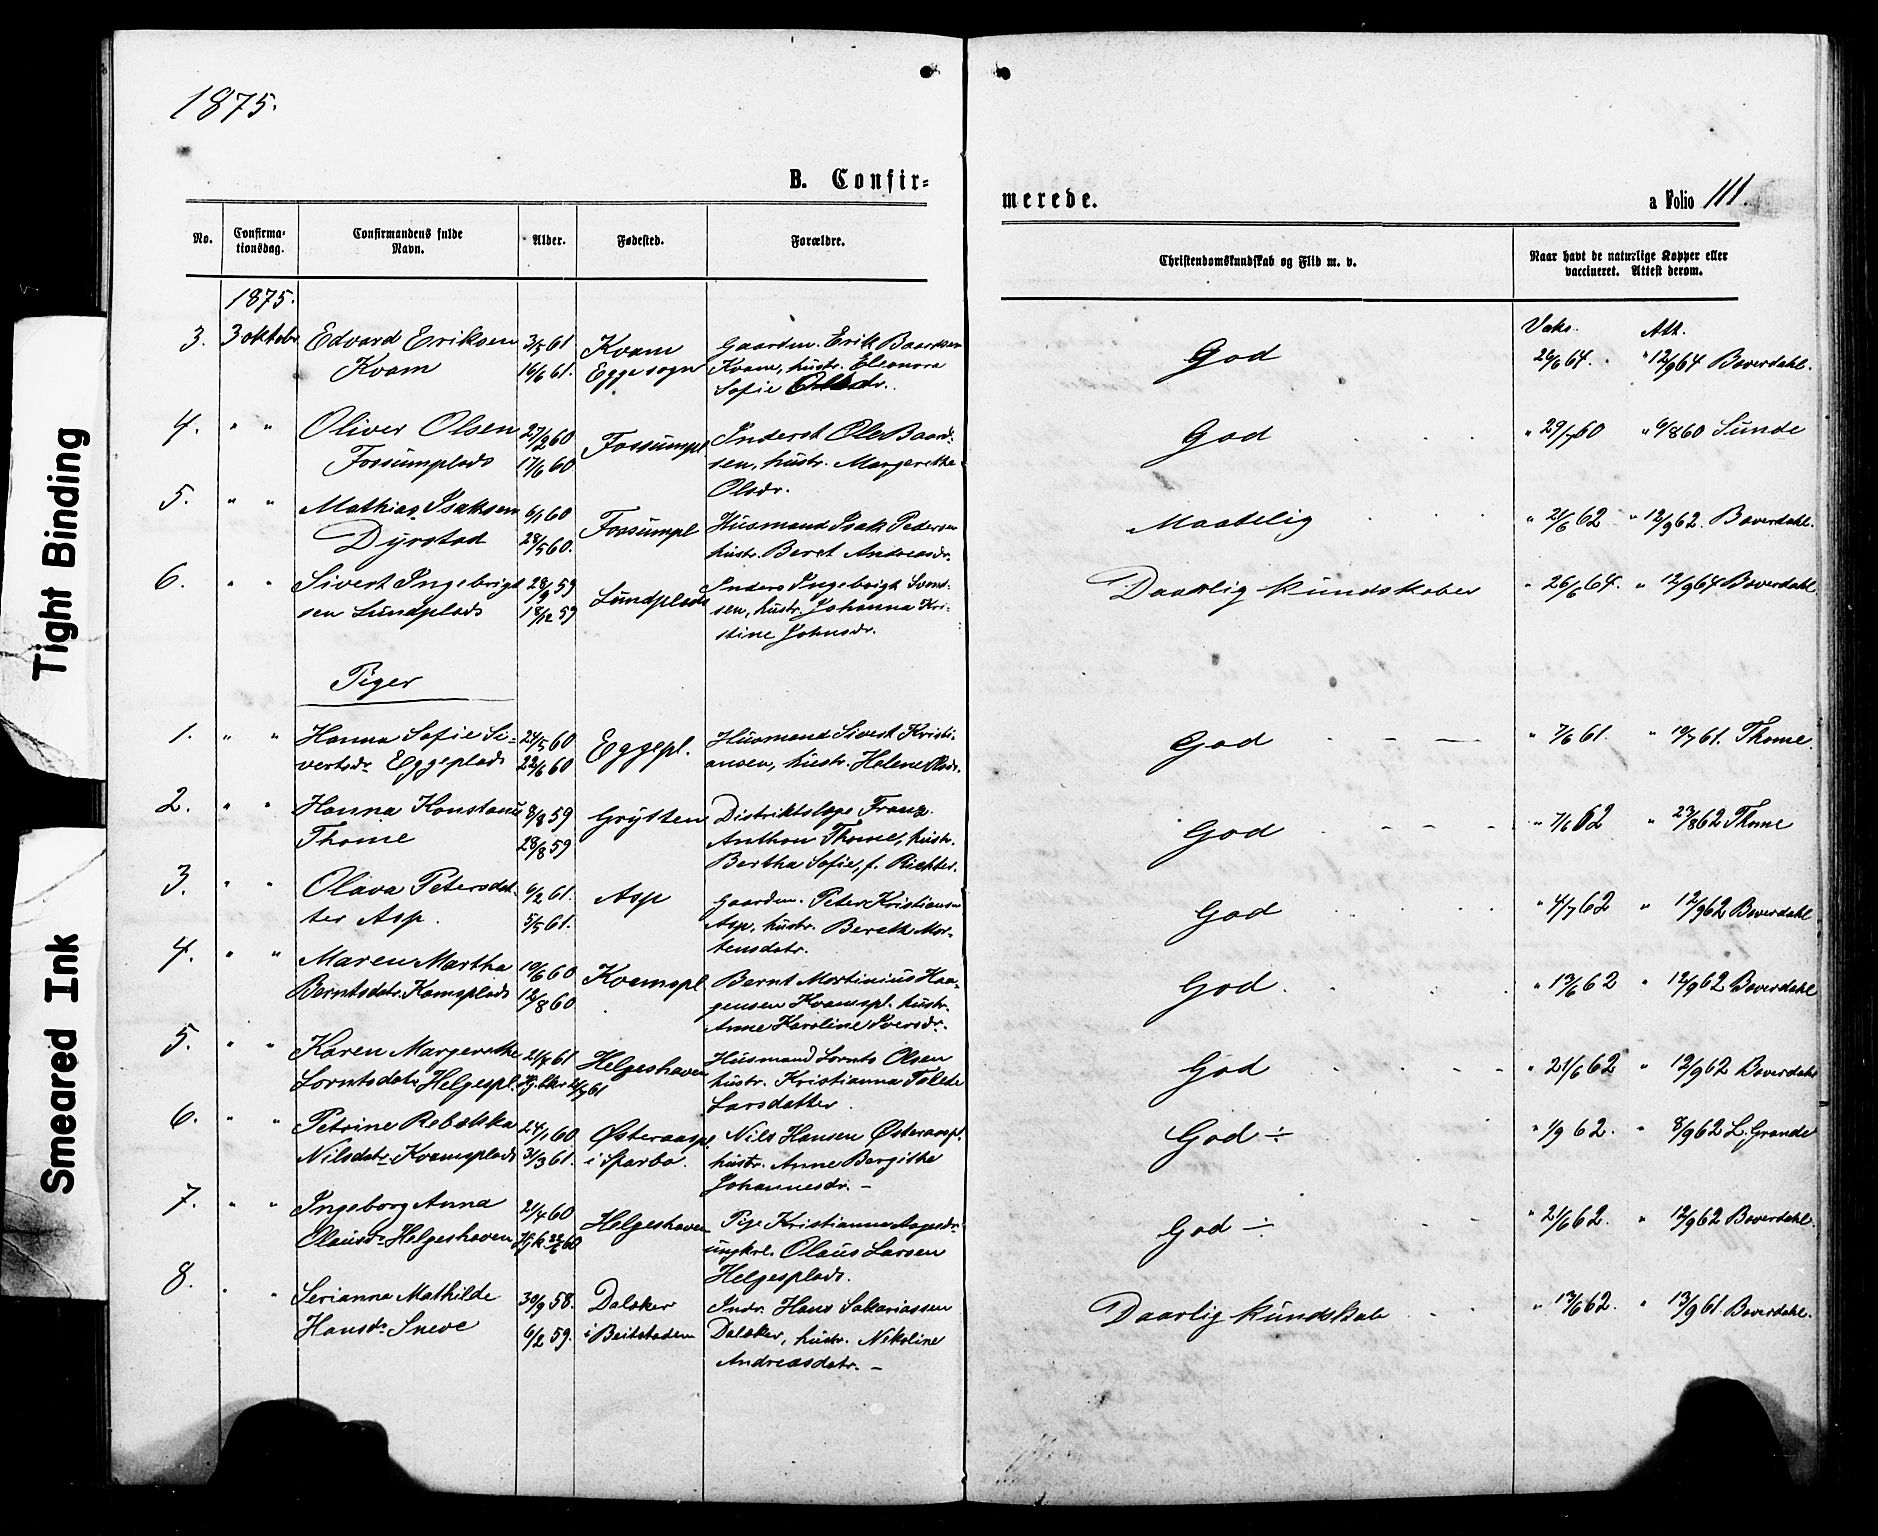 1875.
B. Confir-
merede.
a Folio 111.
No. Confirma-tionsdag. Confirmandens fulde Navn. Alder. Fødested. Forældre. Christendomskundskab og Flid m. v. Naar havt de naturlige Kopper eller vaccineret. Attest derom.
1875.
3. 3 oktobr Edvard Eriksen 3/5 61 Kvam Gaardm. Erik Baardsen God Vaks. 26/6 64. Att. " 12/9 64 Boverdahl.
Kvam 16/6 61. Egge sogn Kvam, hustr. Eleonora
Sofie
4. " " Oliver Olsen 27/2 60 Fossumpl Inderst Ole Baard- God " 29/7 60 " 6/8 60 Sunde
Fossumplads 17/6 60 sen, hustr. Margrethe
Olsdr.
5. " " Mathias Isaksen 6/1 60 Fossumpl Husmand Isak Pedersen Maadelig " 21/6 62 " 12/9 62. Boverdahl.
Dyrstad 28/5 60. hustr. Beret Andreasdr.
6. " " Sivert Ingebrigt 28/9 59 Lundplads Inders Ingebrigt Svend- Daarlig kundskaber " 26/6 64. " 12/9 64 Boverdahl
sen Lundplads 18/12 59 sen, hustr. Johanna Kri-
stine Johnsdr.
Piger
1. " " Hanna Sofie Si- 24/5 60 Eggepl. Husmand Sivert Kristi- God " 7/6 61. " 19/7 61. Thome.
vertsdr Eggeplads 22/6 60 ansen, hustr. Helene Olsdr.
2. " " Hanna Konstanse 8/8 59 Grytten Distriktslæge Franz God " 7/6 62 " 23/8 62 Thome
Thome 28/8 59 Anthon Thome, hustr.
Bertha Sofie, f. Richter.
3. " " Olava Petersdat- 6/2 61. Asp Gaardm. Peter Kristiansen God " 4/7 62 " 12/9 62 Boverdahl
ter Asp. 5/5 61. Asp, hustr. Bereth Mor-
tensdatr.
4. " " Maren Martha 19/6 60 Kvamspl Bernt Mortinius Haa- God " 13/6 62 12/9 62 Boverdahl
Berntsdatr. Kvamsplads 12/8 60 gensen Kvamspl. hustr.
Anne Karoline Iversdr.
5. " " Karen Margrethe 61 Helgeshaven Husmand Lornts Olsen God " 21/6 62 " 12/9 62 Boverdahl
Lorntsdatr Helgespl. 61 hustr. Kristianna Tolede
Larsdatter
6. " " Petrine Rebekka 24/1 60 Østeraaspl Nils Hansen Østeraaspl. God ÷ " 1/9 62. " 8/9 62 L. Grande
Nilsdatr. Kvamsplads 31/3 61. i Sparbo. hustr. Anne Bergithe
Johannesdr. –
7. " " Ingeborg Anna 21/4 60 Helgeshaven Pige Kristianna Aagesdr God ÷ " 21/6 62. " 12/9 62 Boverdahl.
Olausdr Helgeshaven 60 ungkrl. Olaus Larsen
Helgesplads.
8. " " Serianna Mathilde 30/9 58. Dalaker Indr. Hans Sakariassen Daarlig kundskab " 13/6 62. " 13/9 61. Boverdahl.
Hansdr Sneve 6/2 59. i Beitstaden Dalaker, hustr. Nikoline
Andreasdatr. –
Tight Binding
Smeared Ink